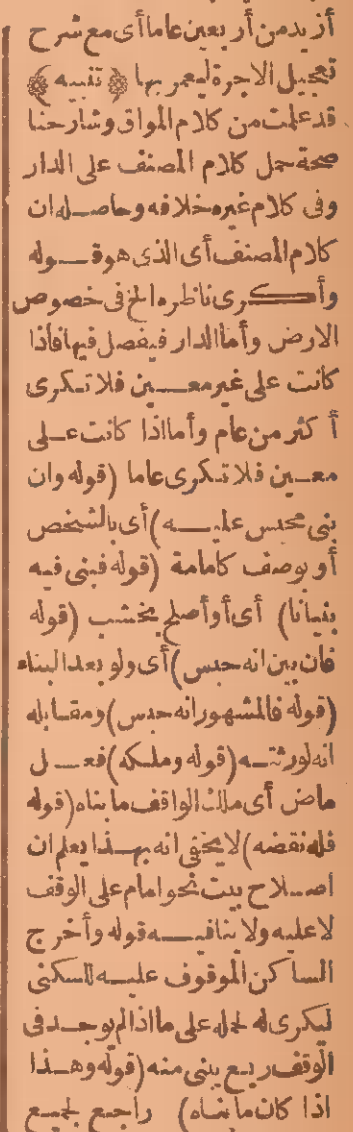 أزيد من أربعين عاما أى مع شرح
تعجيل الاجرة ليعمر بها ﴿ تنبيه ﴾
قد علمت من كلام المواق وشارحنا
صحة حمل كلام المصنف على الدار
وفى كلام غيره خلافه وحاصله ان
كلام المصنف أى الذى هو قوله
وأكرى ناظره الخ فى خصوص
الارض وأما الدار فيفصل فيها فاذا
كانت على غير معين فلا تكرى
أكثر من عام وأما اذا كانت على
معين فلا تكرى عاما (قوله وان
بنى محبس عليه) أى بالشخص
أو بوصف كامامة (قوله فبنى فيه
بنيانا) أى أو أصلح بخشب (قوله
فان بين انه حبس) أى ولو بعد البناء
(قوله فالمشهور انه حبس) ومقابله
انه لورثته (قوله وملكه) فعل
ماض أى ملك الواقف ما بناه (قوله
فله نقضه) لا يخفى انه بهذا يعلم ان
اصلاح بيت نحو امام على الوقف
لا عليه ولا ينافيه قوله وأخرج
الساكن الموقوف عليه للسكنى
ليكرى له لحمله على ما اذا لم يوجد فى
الوقف ريع يبنى منه (قوله وهذا
اذا كان ما بناه) راجع لجميع